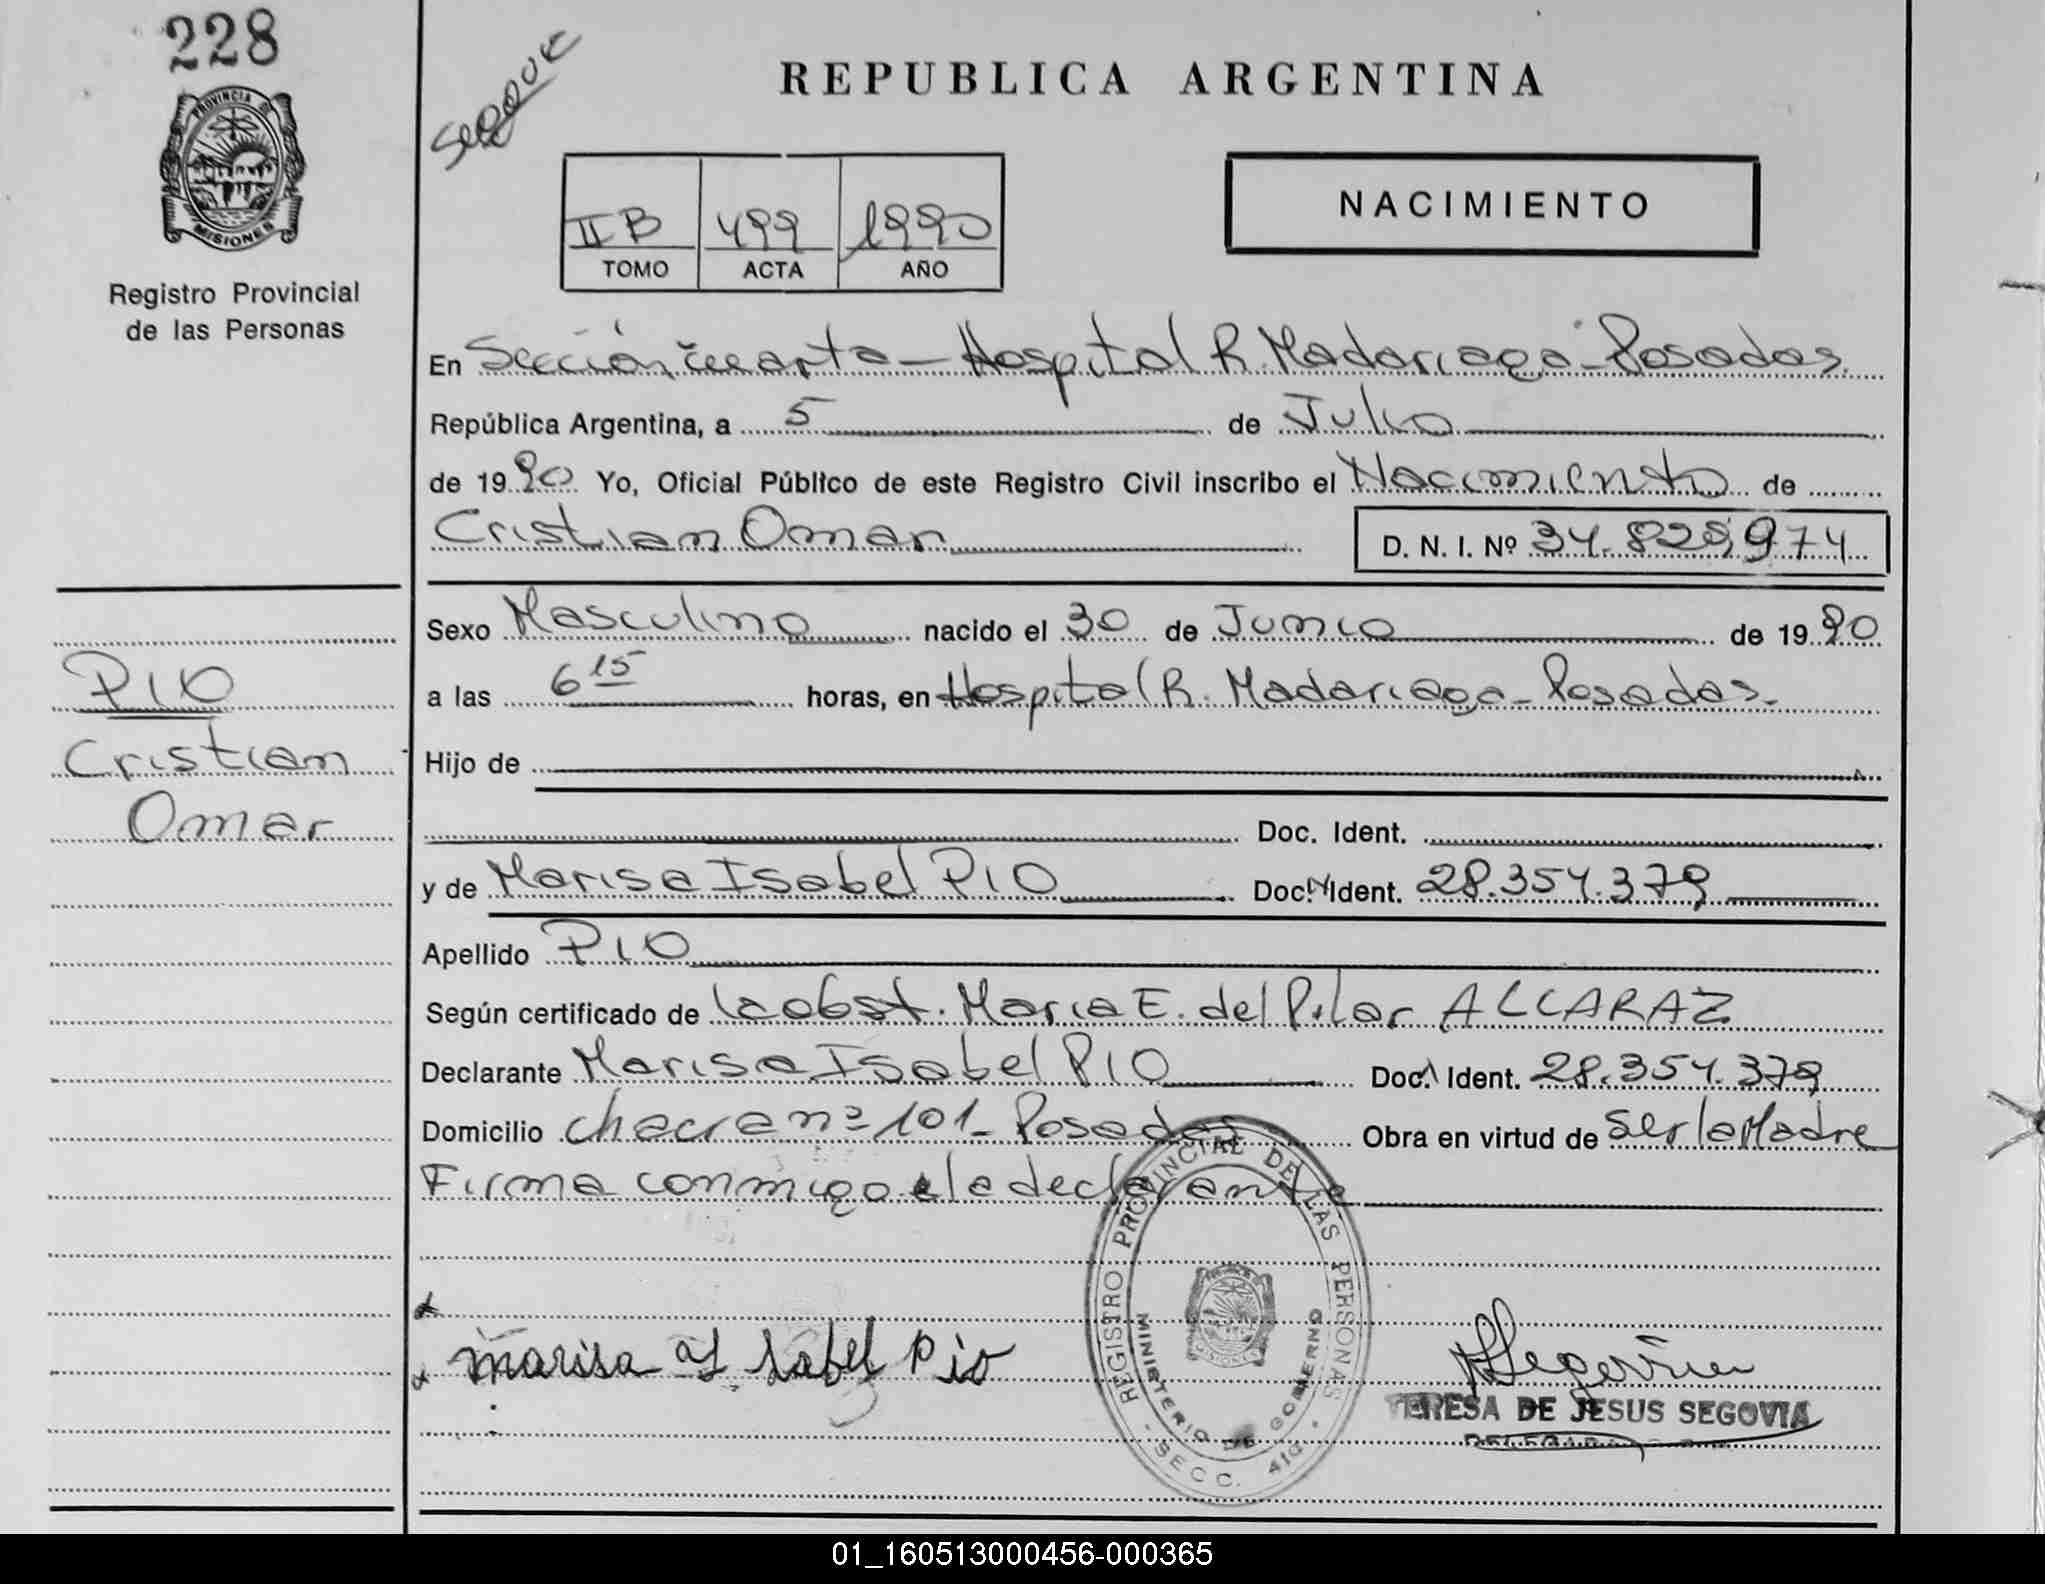 228
PROVINCIA DE
MISIONES
Registro Provincial
de las Personas
PIO
Cristian
Omar
REPUBLICA ARGENTINA
II B 499 1990
TOMO ACTA AÑO
NACIMIENTO
En Sección cuarta - Hospital R. Madariaga - Posadas.
República Argentina, a 5 de Julio
de 1990 Yo, Oficial Público de este Registro Civil inscribo el Nacimiento de
Cristian Omar D. N. I. Nº 34.825.974
Sexo Masculino nacido el 30 de Junio de 1990
a las 6 15 horas, en Hospital R. Madariaga - Posadas.
Hijo de
Doc. Ident.
y de Marisa Isabel PIO Doc. N Ident. 28.354.379
Apellido PIO
Según certificado de la obst. Maria E. del Pilar ALCARAZ
Declarante Marisa Isabel PIO Doc. N Ident. 28.354.379
Domicilio chacra nº 101 - Posadas Obra en virtud de ser la Madre
Firma conmigo la declarante
marisa Isabel Pio
REGISTRO PROVINCIAL DE LAS PERSONAS
MINISTERIO DE GOBIERNO
SECC. 4ta
TERESA DE JESUS SEGOVIA
01_160513000456-000365